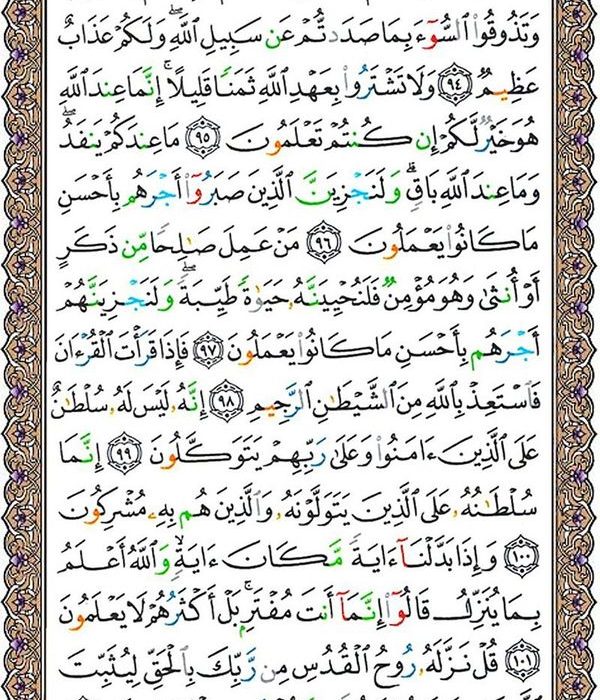 وَتَذُوقُوا۟ ٱلسُّوٓءَ بِمَا صَدَدتُّمْ عَن سَبِيلِ ٱللَّهِ ۖ وَلَكُمْ عَذَابٌ
عَظِيمٌ ٩٤ وَلَا تَشْتَرُوا۟ بِعَهْدِ ٱللَّهِ ثَمَنًا قَلِيلًا ۚ إِنَّمَا عِندَ ٱللَّهِ
هُوَ خَيْرٌ لَّكُمْ إِن كُنتُمْ تَعْلَمُونَ ٩٥ مَا عِندَكُمْ يَنفَدُ ۖ
وَمَا عِندَ ٱللَّهِ بَاقٍ ۗ وَلَنَجْزِيَنَّ ٱلَّذِينَ صَبَرُوٓا۟ أَجْرَهُم بِأَحْسَنِ
مَا كَانُوا۟ يَعْمَلُونَ ٩٦ مَنْ عَمِلَ صَٰلِحًا مِّن ذَكَرٍ
أَوْ أُنثَىٰ وَهُوَ مُؤْمِنٌ فَلَنُحْيِيَنَّهُۥ حَيَوٰةً طَيِّبَةً ۖ وَلَنَجْزِيَنَّهُمْ
أَجْرَهُم بِأَحْسَنِ مَا كَانُوا۟ يَعْمَلُونَ ٩٧ فَإِذَا قَرَأْتَ ٱلْقُرْءَانَ
فَٱسْتَعِذْ بِٱللَّهِ مِنَ ٱلشَّيْطَٰنِ ٱلرَّجِيمِ ٩٨ إِنَّهُۥ لَيْسَ لَهُۥ سُلْطَٰنٌ
عَلَى ٱلَّذِينَ ءَامَنُوا۟ وَعَلَىٰ رَبِّهِمْ يَتَوَكَّلُونَ ٩٩ إِنَّمَا
سُلْطَٰنُهُۥ عَلَى ٱلَّذِينَ يَتَوَلَّوْنَهُۥ وَٱلَّذِينَ هُم بِهِۦ مُشْرِكُونَ
١٠٠ وَإِذَا بَدَّلْنَآ ءَايَةً مَّكَانَ ءَايَةٍ ۙ وَٱللَّهُ أَعْلَمُ
بِمَا يُنَزِّلُ قَالُوٓا۟ إِنَّمَآ أَنتَ مُفْتَرٍۭ ۚ بَلْ أَكْثَرُهُمْ لَا يَعْلَمُونَ
١٠١ قُلْ نَزَّلَهُۥ رُوحُ ٱلْقُدُسِ مِن رَّبِّكَ بِٱلْحَقِّ لِيُثَبِّتَ